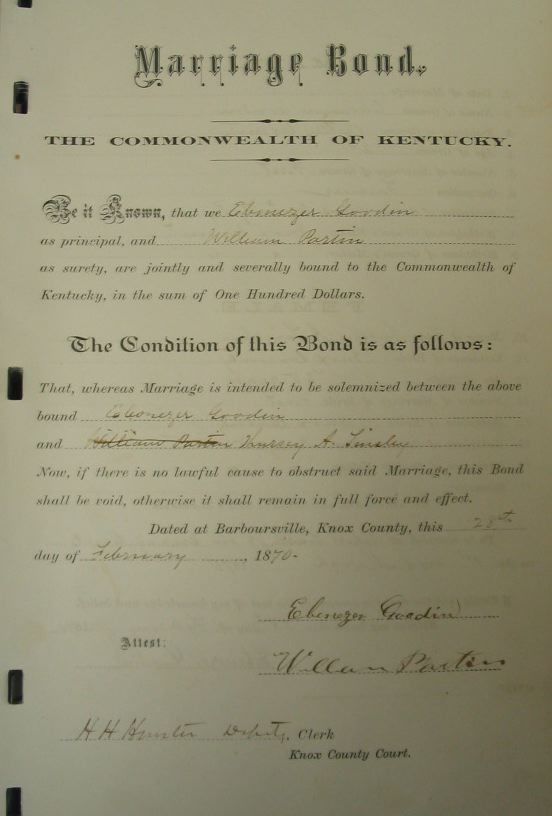 Marriage Bond.
THE COMMONWEALTH OF KENTUCKY.
Be it Known, that we Ebenezer Goodin
as principal, and William Partin
as surety, are jointly and severally bound to the Commonwealth of
Kentucky, in the sum of One Hundred Dollars.
The Condition of this Bond is as follows:
That, whereas Marriage is intended to be solemnized between the above
bound Ebenezer Goodin
and William Partin A. Tinsley
Now, if there is no lawful cause to obstruct said Marriage, this Bond
shall be void, otherwise it shall remain in full force and effect.
Dated at Barboursville, Knox County, this 28th
day of February, 1870-
Ebenezer Goodin
Attest:
William Partin
H H Deputy, Clerk
Knox County Court.